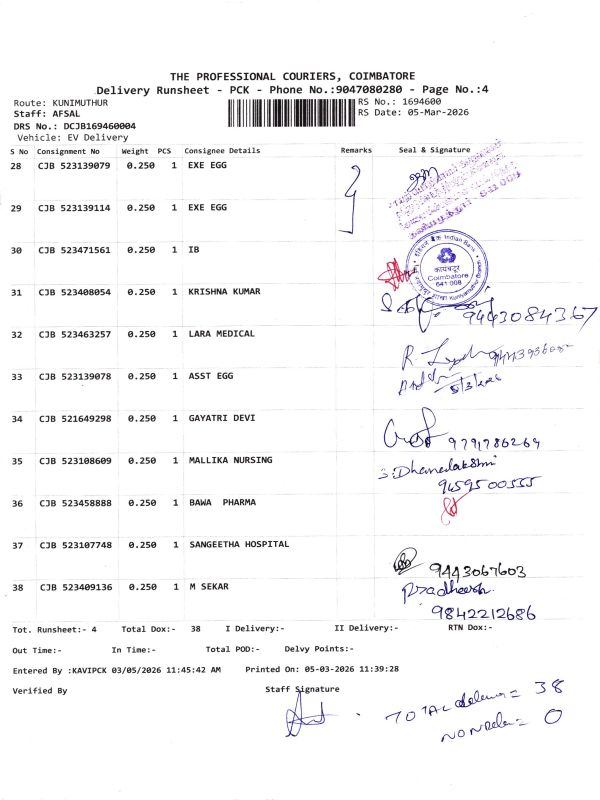 THE PROFESSIONAL COURIERS, COIMBATORE
Delivery Runsheet - PCK - Phone No.:9047080280 - Page No.:4
Route: KUNIMUTHUR
Staff: AFSAL
DRS No.: DCJB169460004
Vehicle: EV Delivery
RS No.: 1694600
RS Date: 05-Mar-2026
S No Consignment No Weight PCS Consignee Details Remarks Seal & Signature
28 CJB 523139079 0.250 1 EXE EGG
641 008
29 CJB 523139114 0.250 1 EXE EGG
30 CJB 523471561 0.250 1 IB
Indian Bank
Coimbatore
641 008
31 CJB 523408054 0.250 1 KRISHNA KUMAR
9443084367
32 CJB 523463257 0.250 1 LARA MEDICAL
33 CJB 523139078 0.250 1 ASST EGG
34 CJB 521649298 0.250 1 GAYATRI DEVI
9791786264
35 CJB 523108609 0.250 1 MALLIKA NURSING
S. Dhanalakshmi
9659500555
36 CJB 523458888 0.250 1 BAWA PHARMA
37 CJB 523107748 0.250 1 SANGEETHA HOSPITAL
9443067603
38 CJB 523409136 0.250 1 M SEKAR
Pradheesh
9842212686
Tot. Runsheet:- 4 Total Dox:- 38 I Delivery:- II Delivery:- RTN Dox:-
Out Time:- In Time:- Total POD:- Delvy Points:-
Entered By :KAVIPCK 03/05/2026 11:45:42 AM Printed On: 05-03-2026 11:39:28
Verified By Staff Signature
TOTAL = 38
= 0